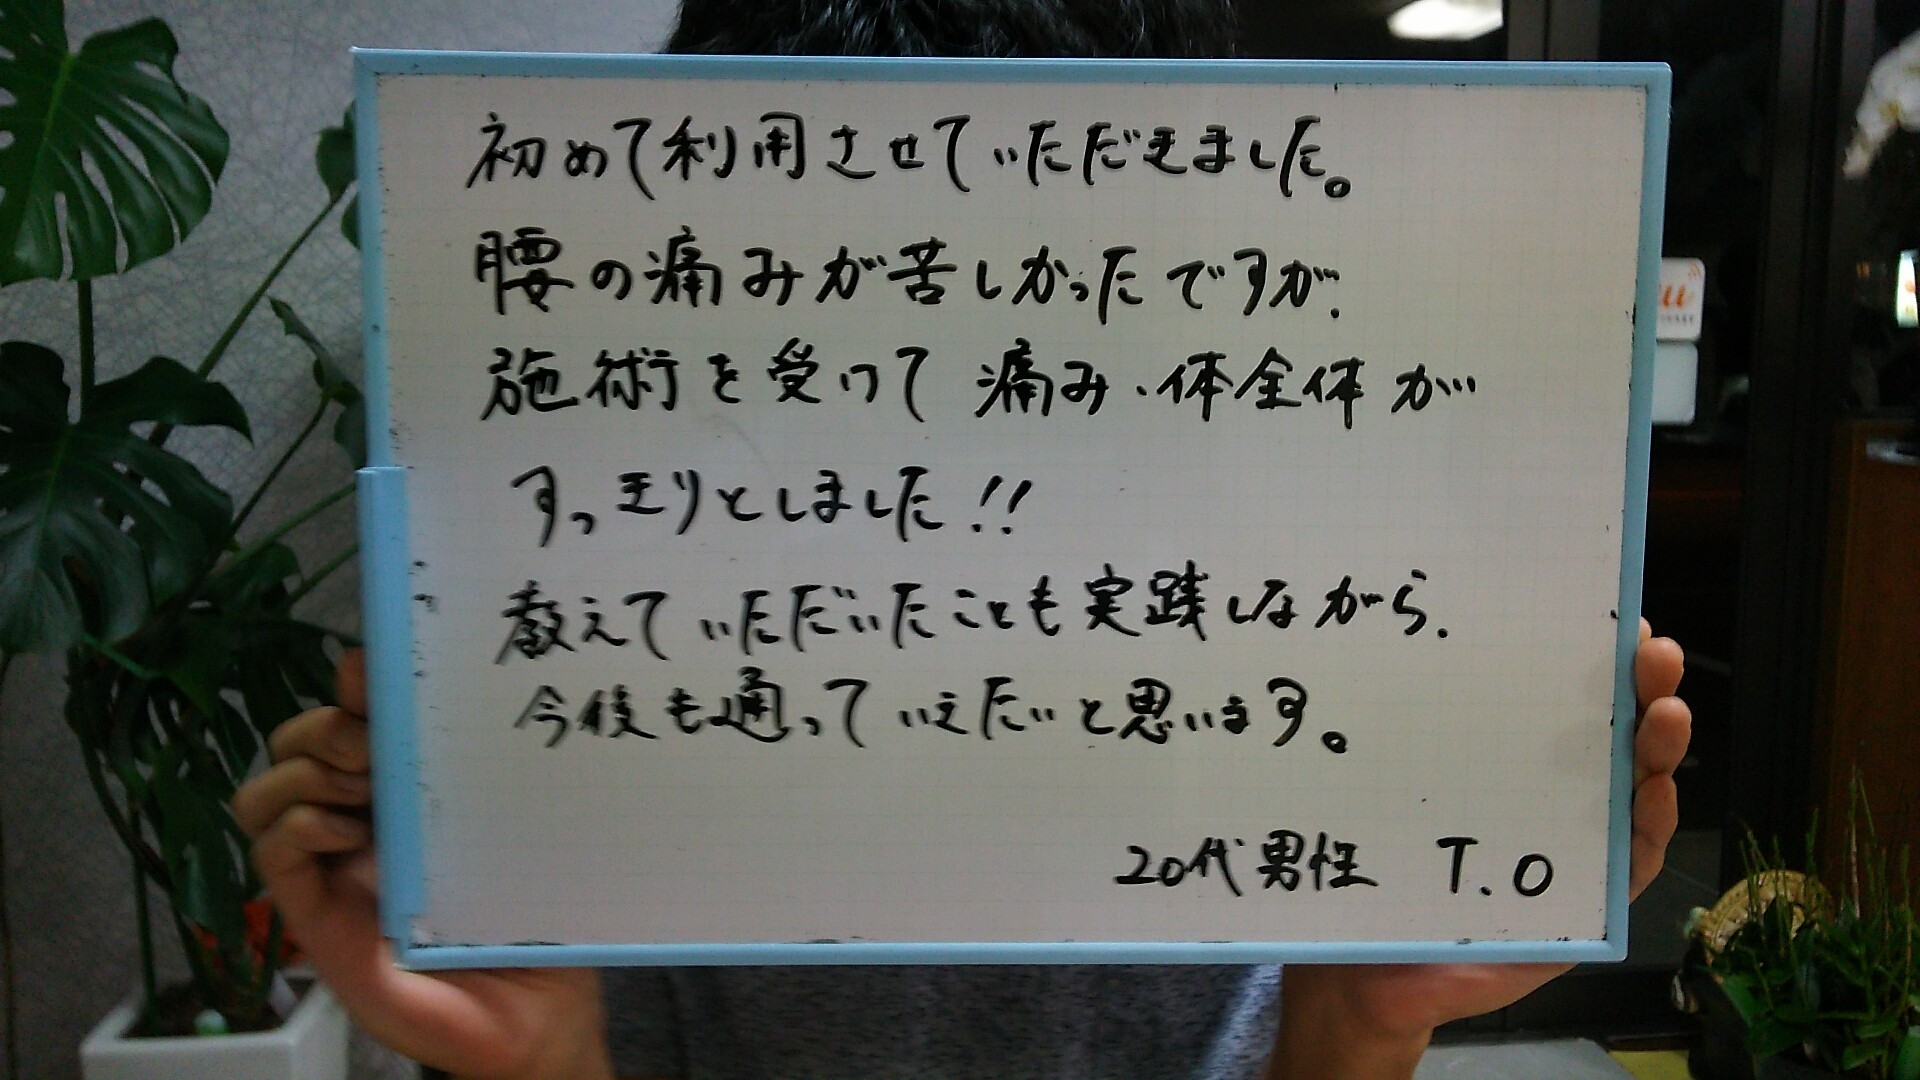 初めて利用させていただきました。
腰の痛みが苦しかったですが、
施術を受けて 痛み、体全体が
すっきりとしました!!
教えていただいたことも実践しながら、
今後も通っていきたいと思います。
20代男性 T.O